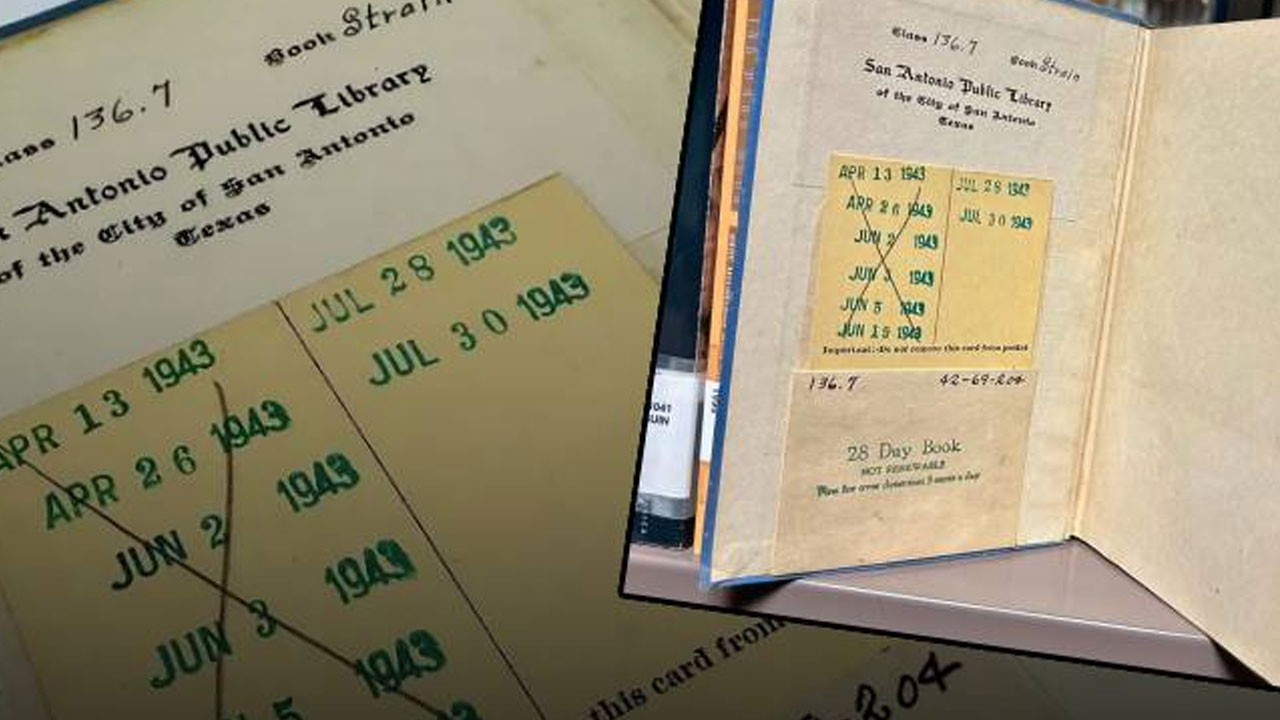 Class 136.7 Book Strain
San Antonio Public Library
of the City of San Antonio
Texas
APR 13 1943
APR 26 1943
JUN 2 1943
JUN 3 1943
JUN 5 1943
JUN 15 1943
JUL 28 1943
JUL 30 1943
Important:-Do not remove this card from pocket
136.7 42-69-204
28 Day Book
NOT RENEWABLE
Fine for over detention 3 cents a day
041
lass 136.7 Book Strain
Antonio Public Library
of the City of San Antonio
Texas
APR 13 1943
APR 26 1943
JUN 2 1943
JUN 3 1943
5 1943
JUL 28 1943
JUL 30 1943
this card from
204